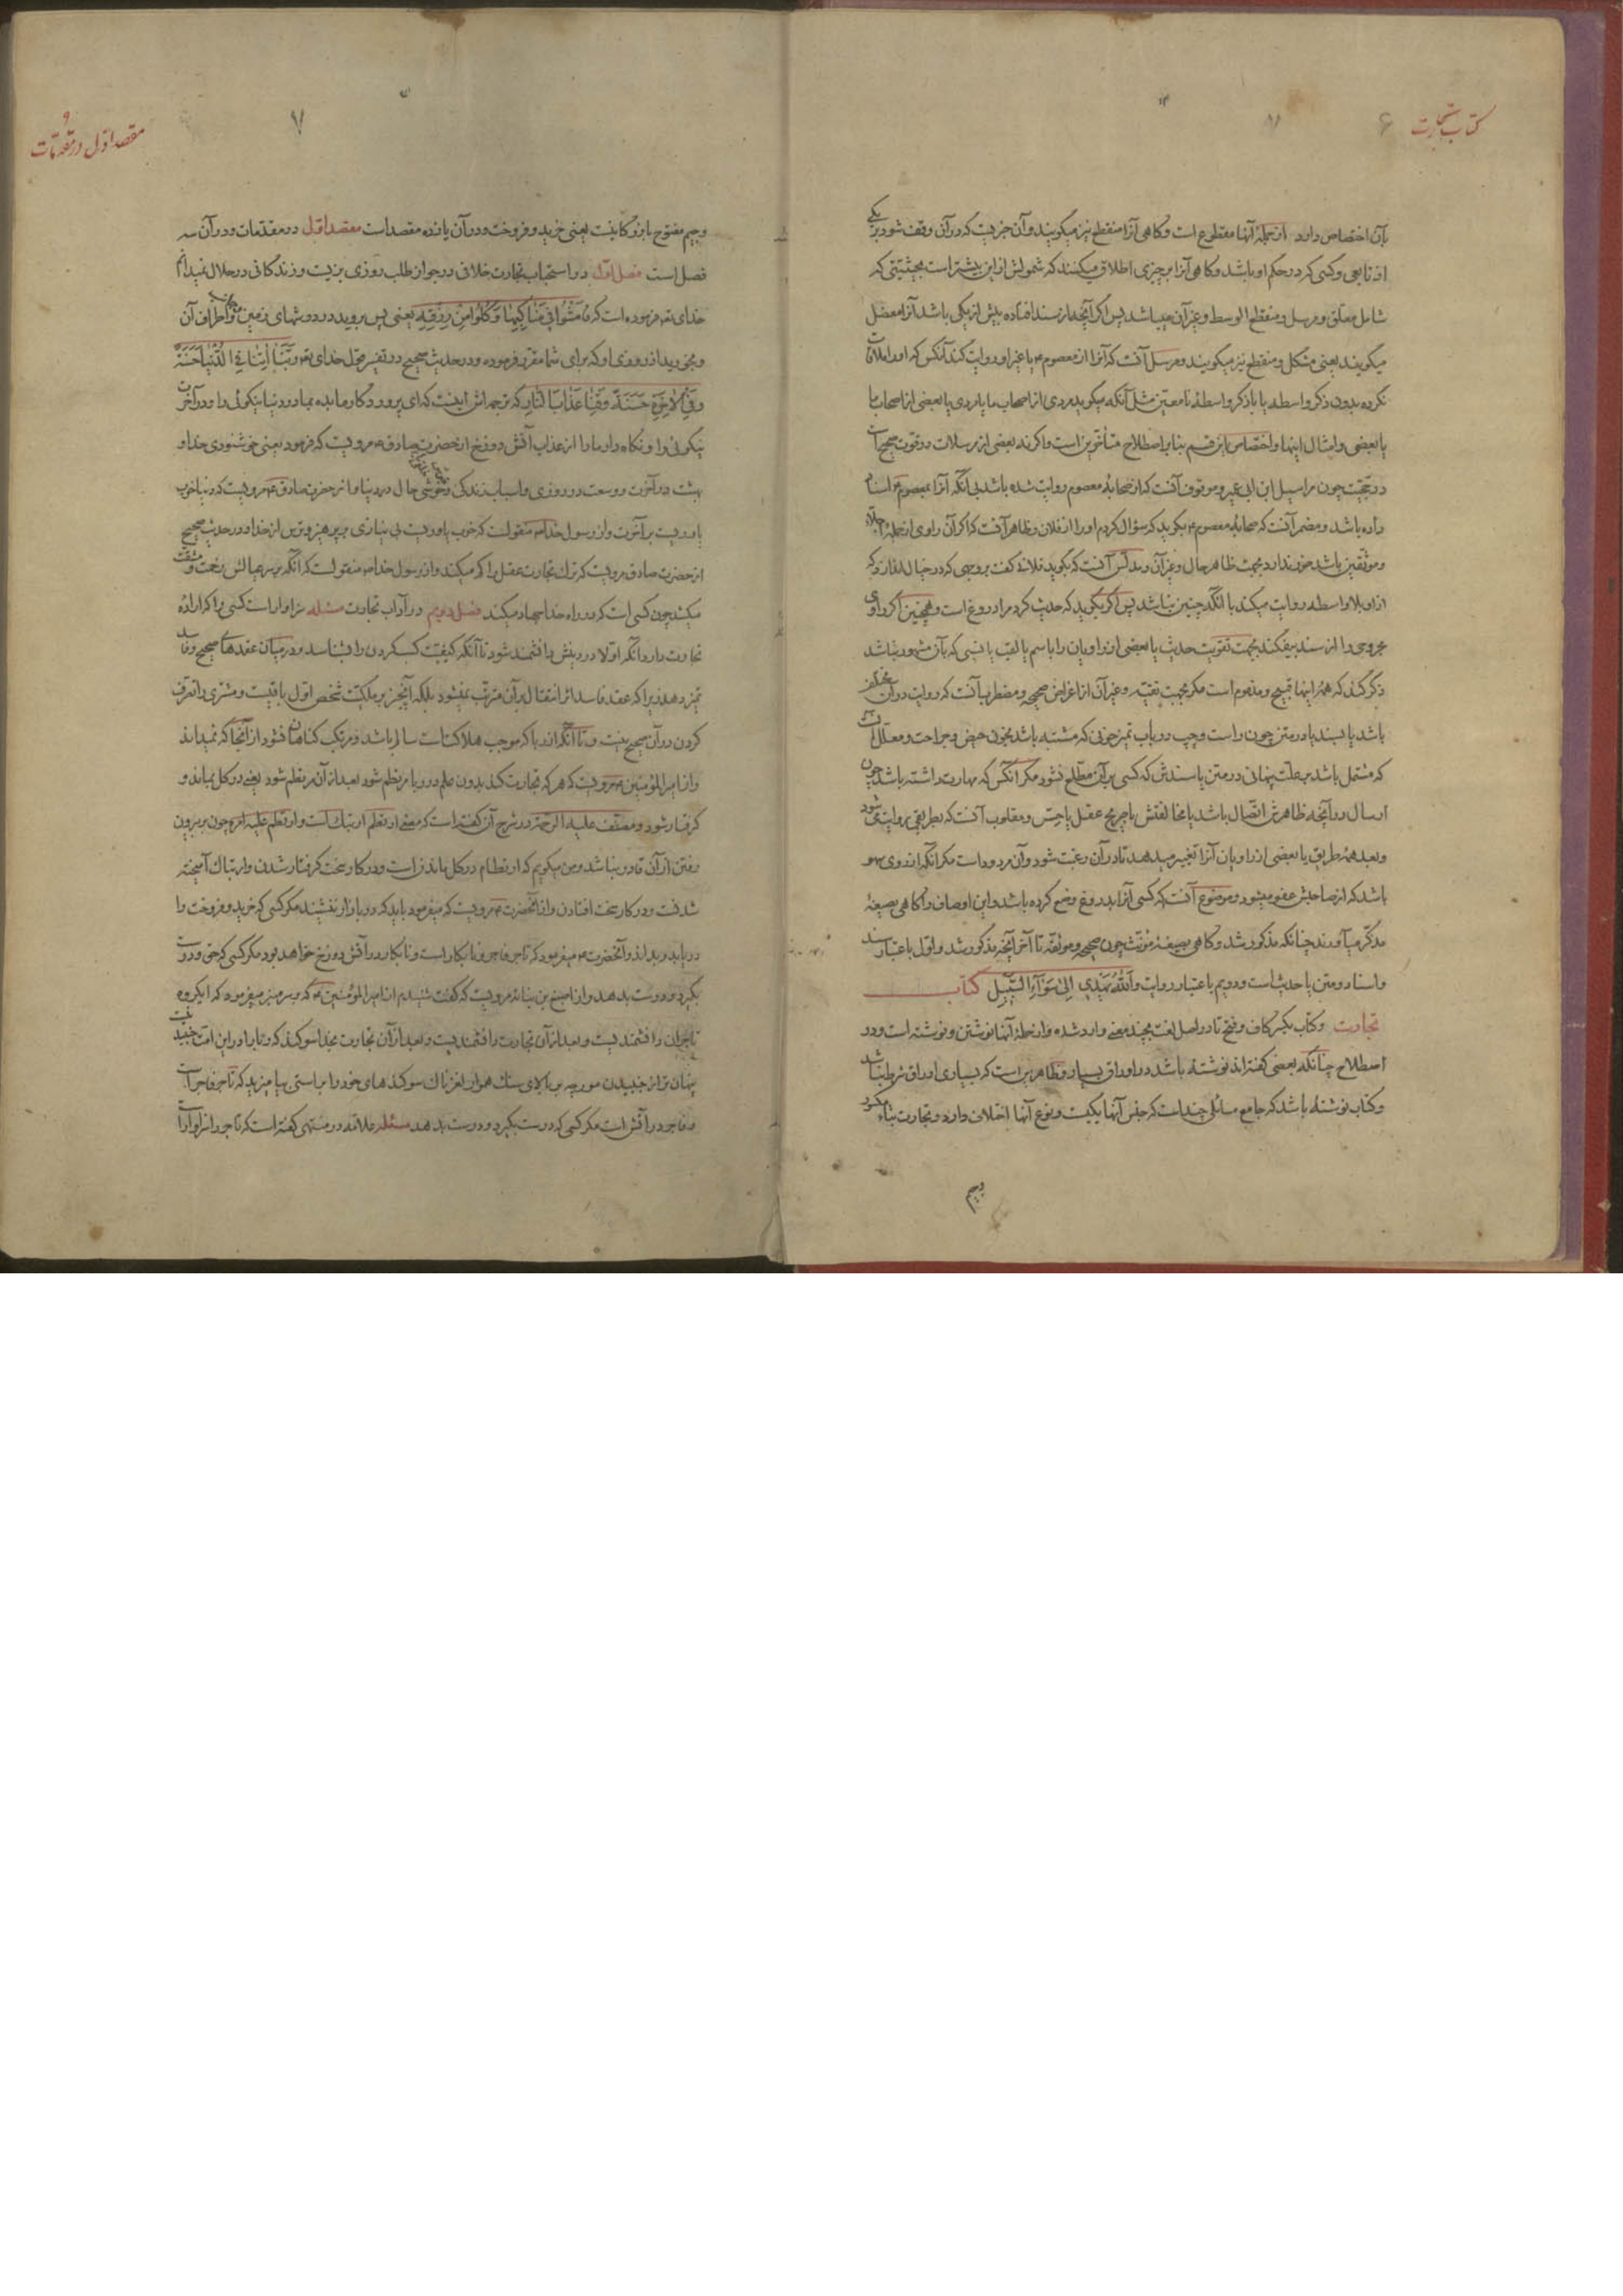 کتاب تجارت ۶
بآن اختصاص دارد از جملهٔ آنها مقطوع است و کاهی آنرا منقطع نیز میکویند و آن خبریست که در آن وقف شود بر یکی
از تابعی و کسی که در حکم او باشد و کاهی آنرا بر چیزی اطلاق میکنند که شمولش ازین بیشتر است بحیثیتی که
شامل معلق و مرسل و منقطع الوسط و غیر آن میباشد پس اکر آنچه از سند افتاده بیش از یکی باشد آنرا معضل
میکویند یعنی مشکل و منقطع نیز میکویند و مرسل آنست که آنرا از معصوم ع یا غیر او روایت کند آنکس که او را ملاقات
نکرده بدون ذکر واسطه یا با ذکر واسطهٔ نامعین مثل آنکه میکوید مردی از اصحاب ما یا مردی یا بعضی از اصحاب ما
یا بعضی و امثال اینها و اختصاص باین قسم بنابر اصطلاح متأخرین است واکرنه بعضی از مرسلات در قوت صحیح است
در حجیت چون مراسیل ابن ابی عمیر و موقوف آنست که از صحابهٔ معصوم روایت شده باشد بی آنکه آنرا بمعصوم ع اسناد
داده باشد و مضمر آنست که صحابهٔ معصوم ع بکوید که سؤال کردم او را از فلان و ظاهر آنست که اکر آن راوی از جملهٔ اجلاء
و موثقین باشد ضرر ندارد بجهت ظاهر حال و غیر آن و مدلس آنست که بکوید فلان کفت بروجهی که در خیال اندازد که
از او بلا واسطه روایت میکند با آنکه چنین نباشد پس اکر بکوید که حدیث کرد مرا دروغ است و همچنین اکر راوی
مجروحی را از سند بیفکند بجهت تقویت حدیث یا بعضی از راویان را باسم یا لقب یا نسبی که بآن مشهور نباشد
ذکر کند که همهٔ اینها قبیح و مذموم است مکر بجهت تقیه و غیر آن از اغراض صحیحه و مضطرب آنست که روایت در آن مختلف
باشد یا بسند یا در متن چون راست و چپ در باب تمیز خونی که مشتبه باشد بخون حیض و جراحت و معلل آن است
که مشتمل باشد بر علت پنهانی در متن یا سندش که کسی بر آن مطلع نشود مکر آنکس که مهارت داشته باشد چون
ارسال در آنچه ظاهرش اتصال باشد یا مخالفتش با صریح عقل یا حس و مقلوب آنست که بطریقی روایت شود
و بعد همهٔ طریق یا بعضی از راویان آنرا تغییر میدهد تا در آن رغبت شود و آن مردود است مکر آنکه از روی سهو
باشد که از صاحبش عفو میشود و موضوع آنست که کسی آنرا بدروغ وضع کرده باشد و این اوصاف را کاهی بصیغهٔ
مذکر میآورند چنانکه مذکور شد و کاهی بصیغهٔ مؤنث چون صحیحه و موثقه تا آخر آنچه مذکور شد و اول باعتبار سند
و اسناد و متن یا حدیث است و دویم باعتبار روایت والله یهدی الی سوآء السبیل کتاب
تجارت و کتاب بکسر کاف و فتح تا در اصل لغت بچند معنی وارد شده و از جملهٔ آنها نوشتن و نوشته است و در
اصطلاح چنانکه بعضی کفته اند نوشتهٔ باشد در اوراق بسیار و ظاهر این است که بسیاری اوراق شرط نباشد
و کتاب نوشتهٔ باشد که جامع مسائلی چند است که جنس آنها یکیست و نوع آنها اختلاف دارد و تجارت بتاء مکسور
وجیم
مقصد اول در مقدمات
۷
وجیم مفتوح بازرکانیست یعنی خرید و فروخت و در آن یازده مقصد است مقصد اول در مقدمات و در آن سه
فصل است فصل اول در استحباب تجارت خلافی در جواز طلب روزی بزیست و زندکانی در حلال نمیدانم
خدای تعه فرموده است که فامشوا فی مناکبها و کلوا من رزقه یعنی پس بروید در دوشهای زمین و اطراف آن
و بخورید از روزی او که برای شما مقرر فرموده و در حدیث صحیح در تفسیر قول خدای تعه ربنا آتنا فی الدنیا حسنة
و فی الآخرة حسنة و قنا عذاب النار که ترجمه اش اینست که ای پروردکار ما بده بما در دنیا نیکوئی را و در آخرت
نیکوئی را و نکاه دار ما را از عذاب آتش دوزخ از حضرت صادق ع مرویست که فرمود یعنی خوشنودی خدا و
بهشت در آخرت و وسعت در روزی و اسباب زندکی و خوشی حال در دنیا و از حضرت صادق ع مرویست که دنیا خوب
یاوریست بر آخرت و از رسول خدا ص منقولست که خوب یاوریست بی نیازی بر پرهیز و ترس از خدا و در حدیث صحیح
از حضرت صادق مرویست که ترک تجارت عقل را کم میکند و از رسول خدا ص منقولست که آنکه بر سر عیالش زحمت و مشقت
میکشد چون کسی است که در راه خدا جهاد میکند فصل دویم در آداب تجارت مسئله سزاوار است کسی را که اراده
تجارت دارد آنکه اولا در دینش دانشمند شود تا آنکه کیفیت کسب کردن را بشناسد و در میان عقدهای صحیح و فاسد
تمیز دهد زیرا که عقد فاسد اثر انتقال بر آن مترتب نمیشود بلکه آنچیز بر ملکیت شخص اول باقیست و مشتری را تصرف
کردن در آن صحیح نیست و تا آنکه از ربا که موجب هلاکتست سالم باشد و مرتکب کناهان نشود از آنجا که نمیداند
و از امیر المؤمنین ع مرویست که هر که تجارت کند بدون علم در ربا مرتطم شود بعد از آن مرتطم شود یعنی در کل بماند و
کرفتار شود و مصنف علیه الرحمة در شرح آن کفته است که معنی ارتطم ارتبک است و ارتطم علیه الامر چون بر بیرون
رفتن از آن قادر نباشد و من میکویم که ارتطام در کل ماندن است و در کار سخت کرفتار شدن و ارتباک آمیخته
شدنست و در کار سخت افتادن و از آنحضرت ع مرویست که میفرمود باید که در بازار ننشیند مکر کسی که خرید و فروخت را
دریابد و بداند و آنحضرت ع میفرمود که تاجر فاجر و نابکار است و نابکار در آتش دوزخ خواهد بود مکر کسی که حق و درست
بکیرد و درست بدهد و از اصبغ بن نباته مرویست که کفت شنیدم از امیر المؤمنین ع که بر سر منبر میفرمود که ای کروه
تاجران دانشمندیست و بعد از آن تجارت دانشمندیست و بعد از آن تجارت بخدا سوکند که ربا را در این امت جنبشیست
پنهان تر از جنبیدن مورچه بر بالای سنک هموار لغزناک سوکندهای خود را براستی بیامیزید که تاجر فاجر است
و فاجر در آتش است مکر کسی که درست بکیرد و درست بدهد مسئله علامه در منتهی کفته است که تاجر را سزاوار است